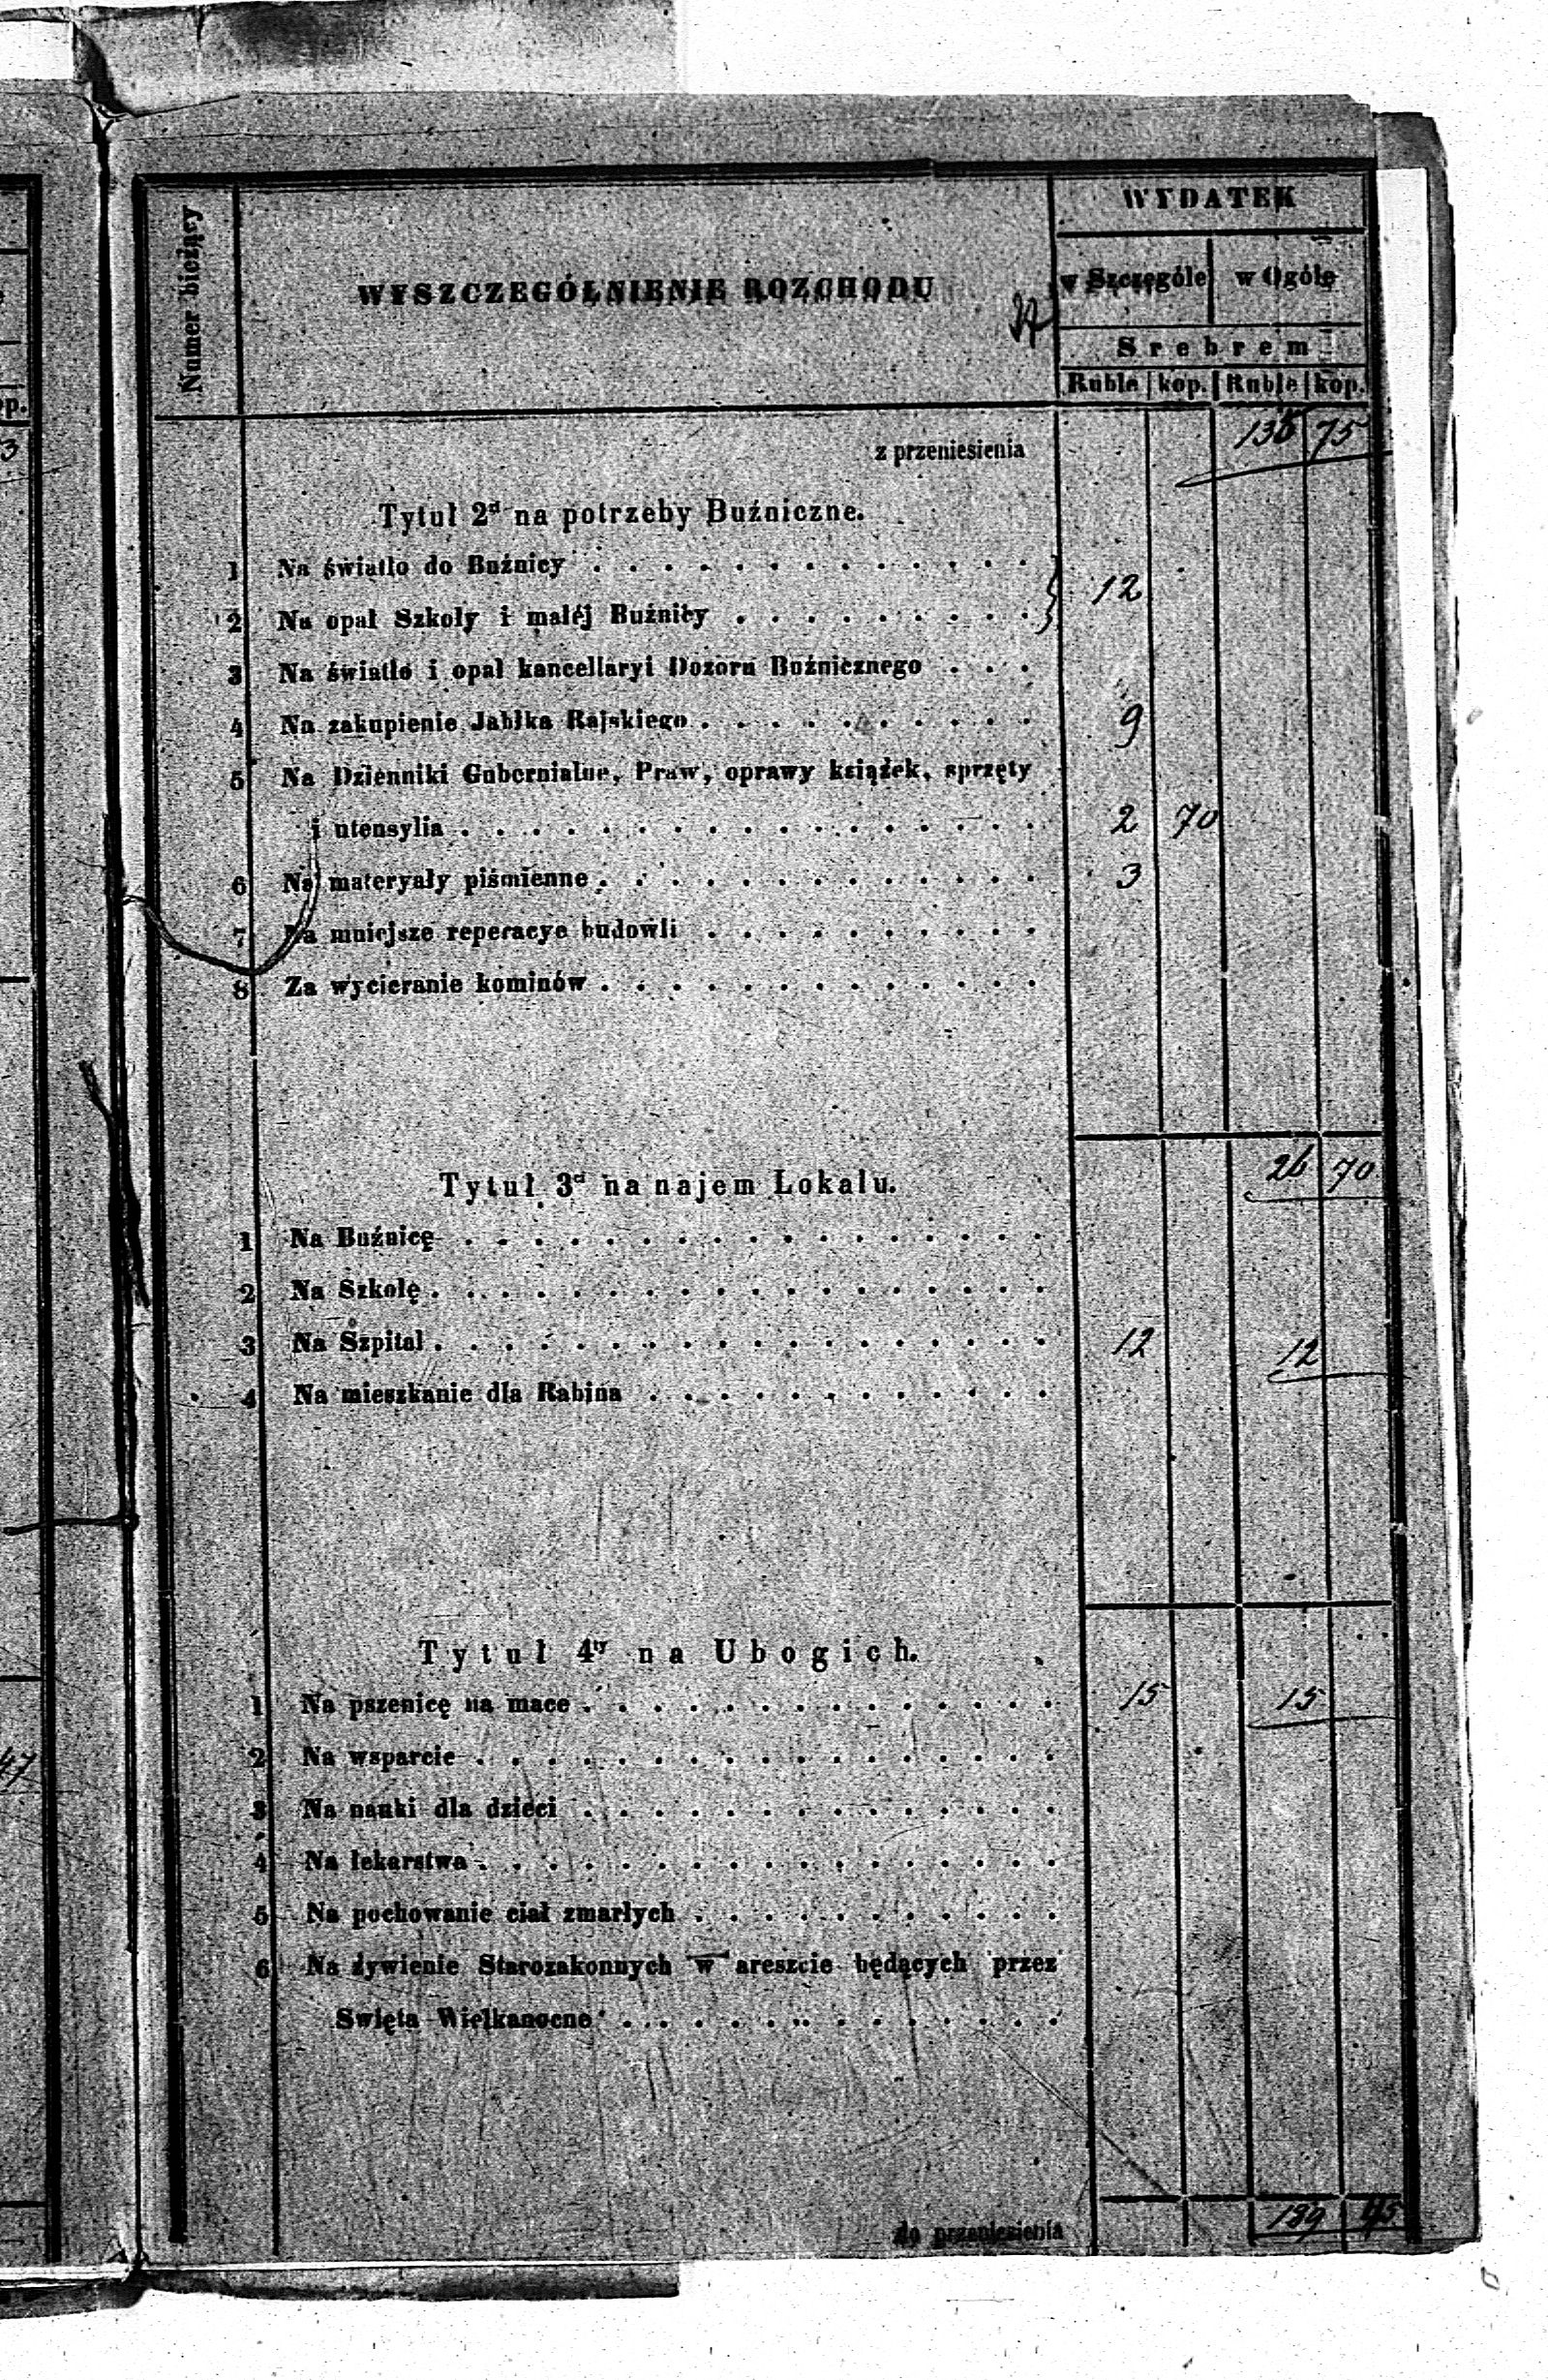 WYDATEK
Numer bieżący
WYSZCZEGÓLNIENIE ROZCHODU
w Szczególe w Ogóle
Srebrem
Ruble kop. Ruble kop.
z przeniesienia 135 75
Tytuł 2ᵍⁱ na potrzeby Buźniczne.
1 Na światło do Buźnicy
12
2 Na opał Szkoły i małéj Buźnicy
3 Na światło i opał kancellaryi Dozoru Buźnicznego
4 Na zakupienie Jabłka Rajskiego 9
5 Na Dzienniki Gubernialne, Praw, oprawy książek, sprzęty
i utensylia 2 70
6 Na materyały piśmienne 3
7 Na mniejsze reperacye budowli
8 Za wycieranie kominów
26 70
Tytuł 3ᶜⁱ na najem Lokalu.
1 Na Buźnicę
2 Na Szkołę
3 Na Szpital 12 12
4 Na mieszkanie dla Rabina
Tytuł 4ᵗʸ na Ubogich.
1 Na pszenicę na mace 15 15
2 Na wsparcie
3 Na nauki dla dzieci
4 Na lekarstwa
5 Na pochowanie ciał zmarłych
6 Na żywienie Starozakonnych w areszcie będących przez
Swięta Wielkanocne
do przeniesienia 189 45